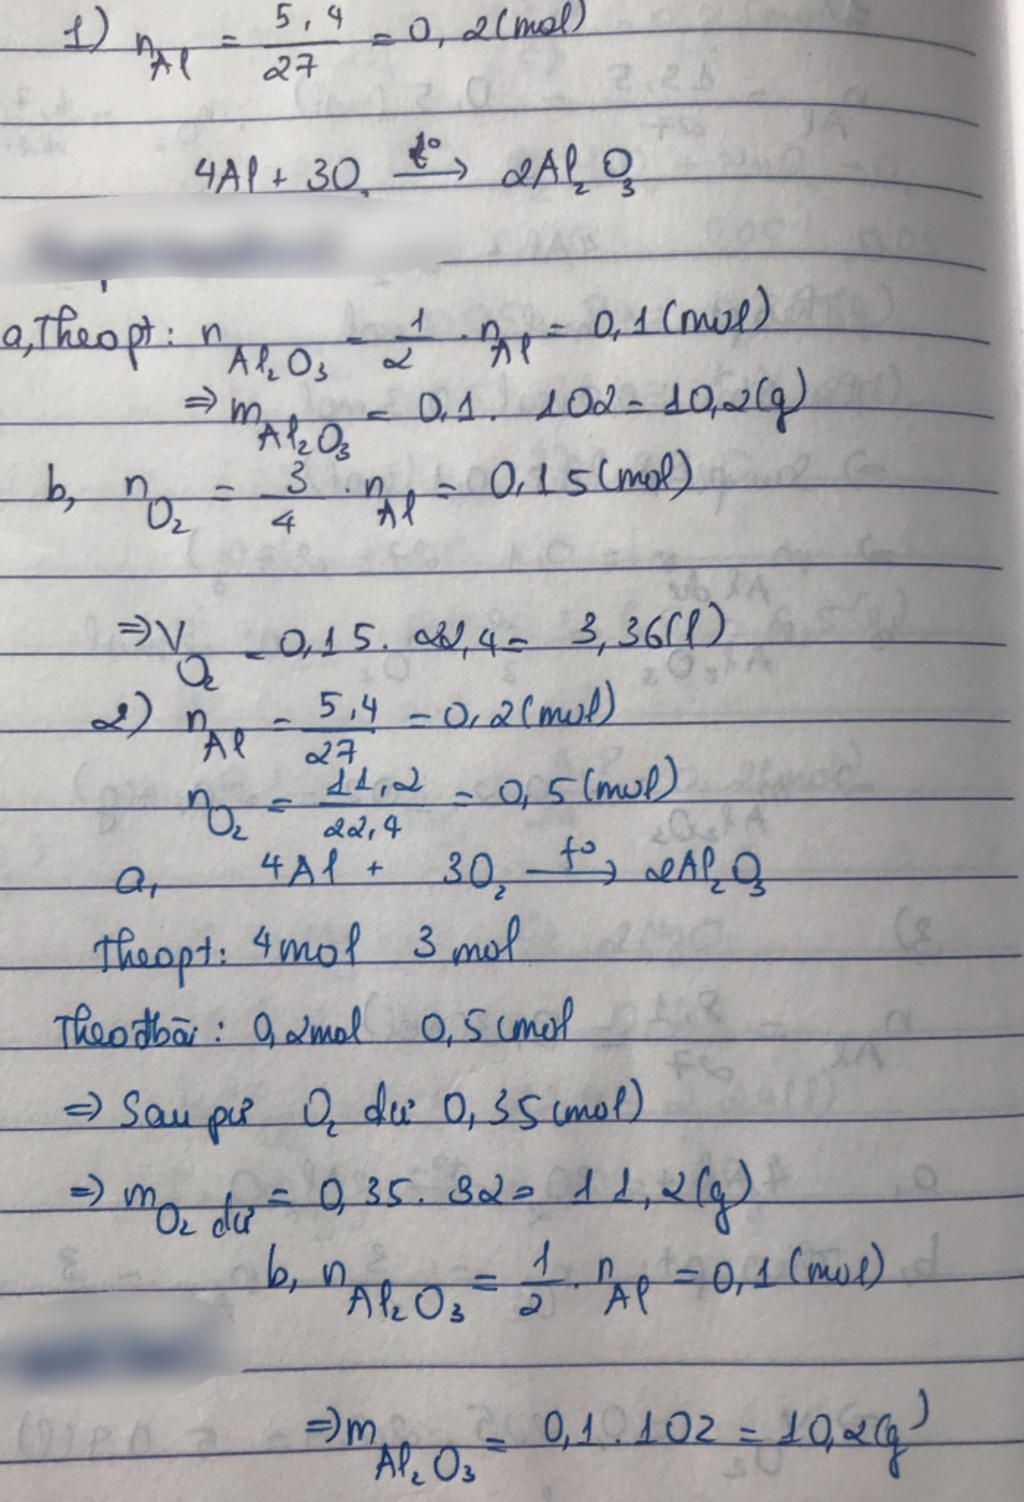 1) n Al = 5,4/27 = 0,2 (mol)
4Al + 3O₂ t°→ 2Al₂O₃
a, Theo pt: n Al₂O₃ = 1/2 . n Al = 0,1 (mol)
⇒ m Al₂O₃ = 0,1 . 102 = 10,2 (g)
b, n O₂ = 3/4 . n Al = 0,15 (mol)
⇒ V O₂ = 0,15 . 22,4 = 3,36 (l)
2) n Al = 5,4/27 = 0,2 (mol)
n O₂ = 11,2/22,4 = 0,5 (mol)
a, 4Al + 3O₂ t°→ 2Al₂O₃
Theo pt: 4 mol 3 mol
Theo đbài: 0,2 mol 0,5 (mol
⇒ Sau pư O₂ dư 0,35 (mol)
⇒ m O₂ dư = 0,35 . 32 = 11,2 (g)
b, n Al₂O₃ = 1/2 . n Al = 0,1 (mol)
⇒ m Al₂O₃ = 0,1 . 102 = 10,2 (g)